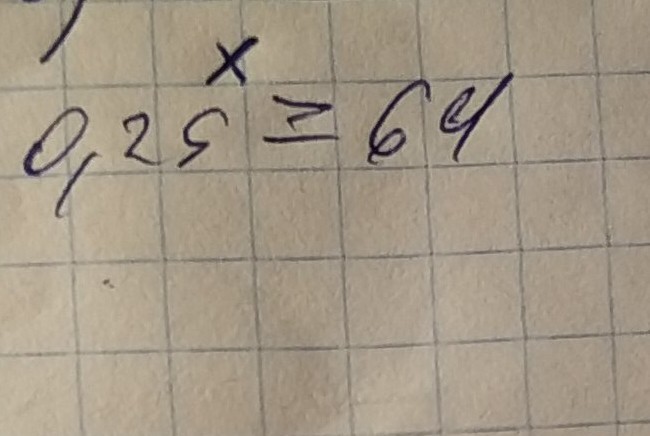 0,25ˣ ≥ 64